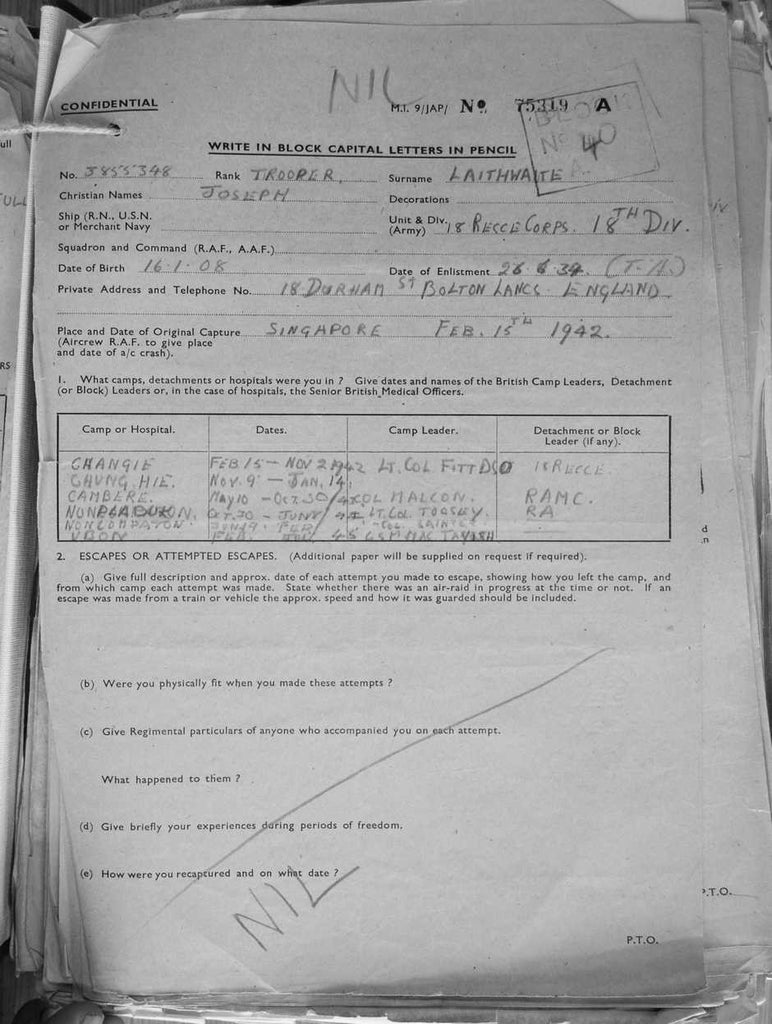 NIL
CONFIDENTIAL
M.I. 9/JAP/ No. 75319 A
BLOCK
No 40
A
WRITE IN BLOCK CAPITAL LETTERS IN PENCIL
No. 3855348 Rank TROOPER. Surname LAITHWAITE
Christian Names JOSEPH Decorations
Ship (R.N., U.S.N. or Merchant Navy Unit & Div. (Army) 18 RECCE CORPS. 18TH DIV.
Squadron and Command (R.A.F., A.A.F.)
Date of Birth 16.1.08 Date of Enlistment 28.6.39. (T.A.)
Private Address and Telephone No. 18 DURHAM ST BOLTON LANCS. ENGLAND
Place and Date of Original Capture SINGAPORE FEB. 15TH 1942.
(Aircrew R.A.F. to give place
and date of a/c crash).
1. What camps, detachments or hospitals were you in ? Give dates and names of the British Camp Leaders, Detachment
(or Block) Leaders or, in the case of hospitals, the Senior British Medical Officers.
Camp or Hospital. Dates. Camp Leader. Detachment or Block Leader (if any).
CHANGIE FEB. 15 - NOV 2 1942 LT. COL FITT DSO 18 RECCE.
CHUNG HIE. NOV. 9 - JAN. 14,
CAMBERE. MAY 10 - OCT. 30/42 COL MALCON. RAMC.
OCT. 30 - JUNY LT COL TOOSEY. RA
NONCOMPATON.
UBON 45 CSM MAC TAVISH
2. ESCAPES OR ATTEMPTED ESCAPES. (Additional paper will be supplied on request if required).
(a) Give full description and approx. date of each attempt you made to escape, showing how you left the camp, and
from which camp each attempt was made. State whether there was an air-raid in progress at the time or not. If an
escape was made from a train or vehicle the approx. speed and how it was guarded should be included.
(b) Were you physically fit when you made these attempts ?
(c) Give Regimental particulars of anyone who accompanied you on each attempt.
What happened to them ?
(d) Give briefly your experiences during periods of freedom.
(e) How were you recaptured and on what date ?
NIL
P.T.O.
P.T.O.